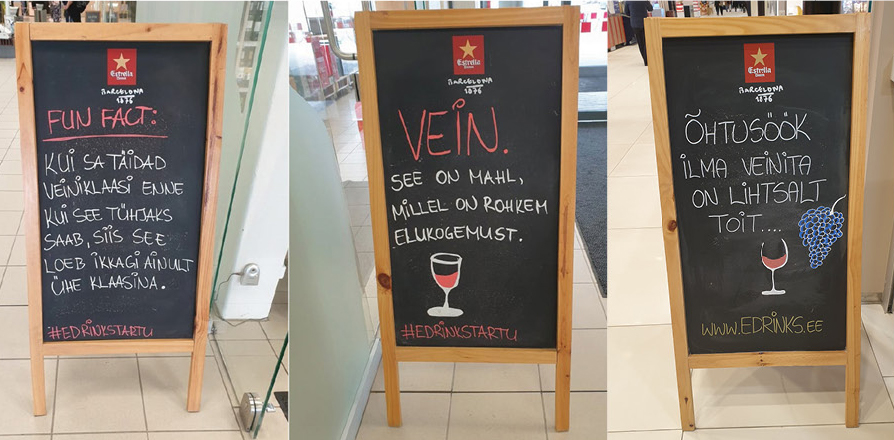 Estrella
Damm
BARCELONA
1876
FUN FACT:
KUI SA TÄIDAD
VEINIKLAASI ENNE
KUI SEE TÜHJAKS
SAAB, SIIS SEE
LOEB IKKAGI AINULT
ÜHE KLAASINA.
#EDRINKSTARTU
Estrella
Damm
BARCELONA
1876
VEIN.
SEE ON MAHL,
MILLEL ON ROHKEM
ELUKOGEMUST.
#EDRINKSTARTU
Estrella
Damm
BARCELONA
1876
ÕHTUSÖÖK
ILMA VEINITA
ON LIHTSALT
TOIT....
WWW.EDRINKS.EE